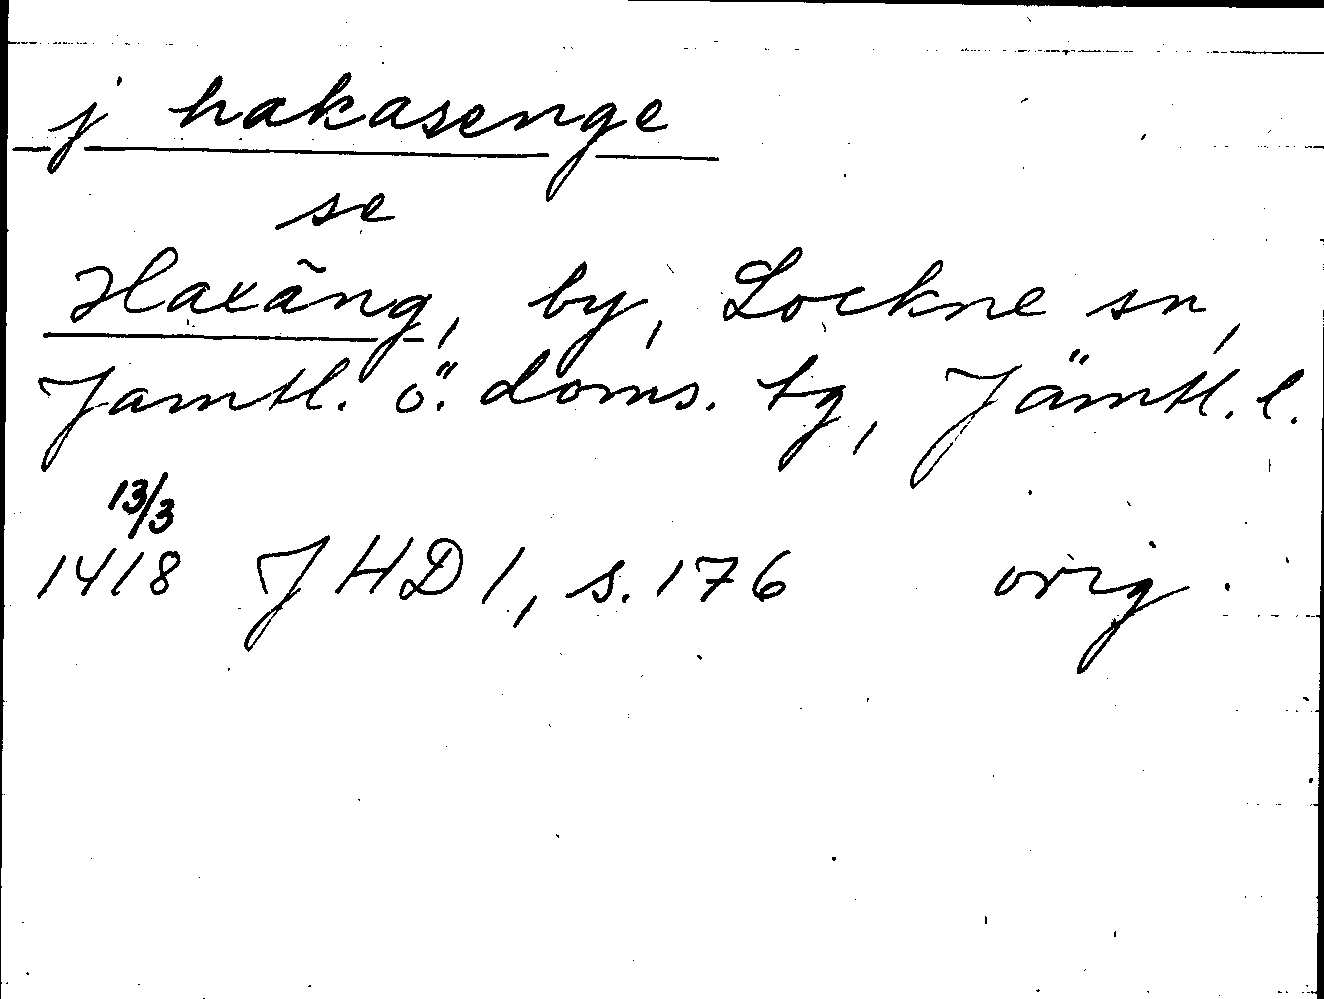 j hakasenge
se
Haxäng, by, Lockne sn,
Jamtl. ö. doms. tg, Jämtl. l.
13/3
1418 JHD 1, s. 176 orig.